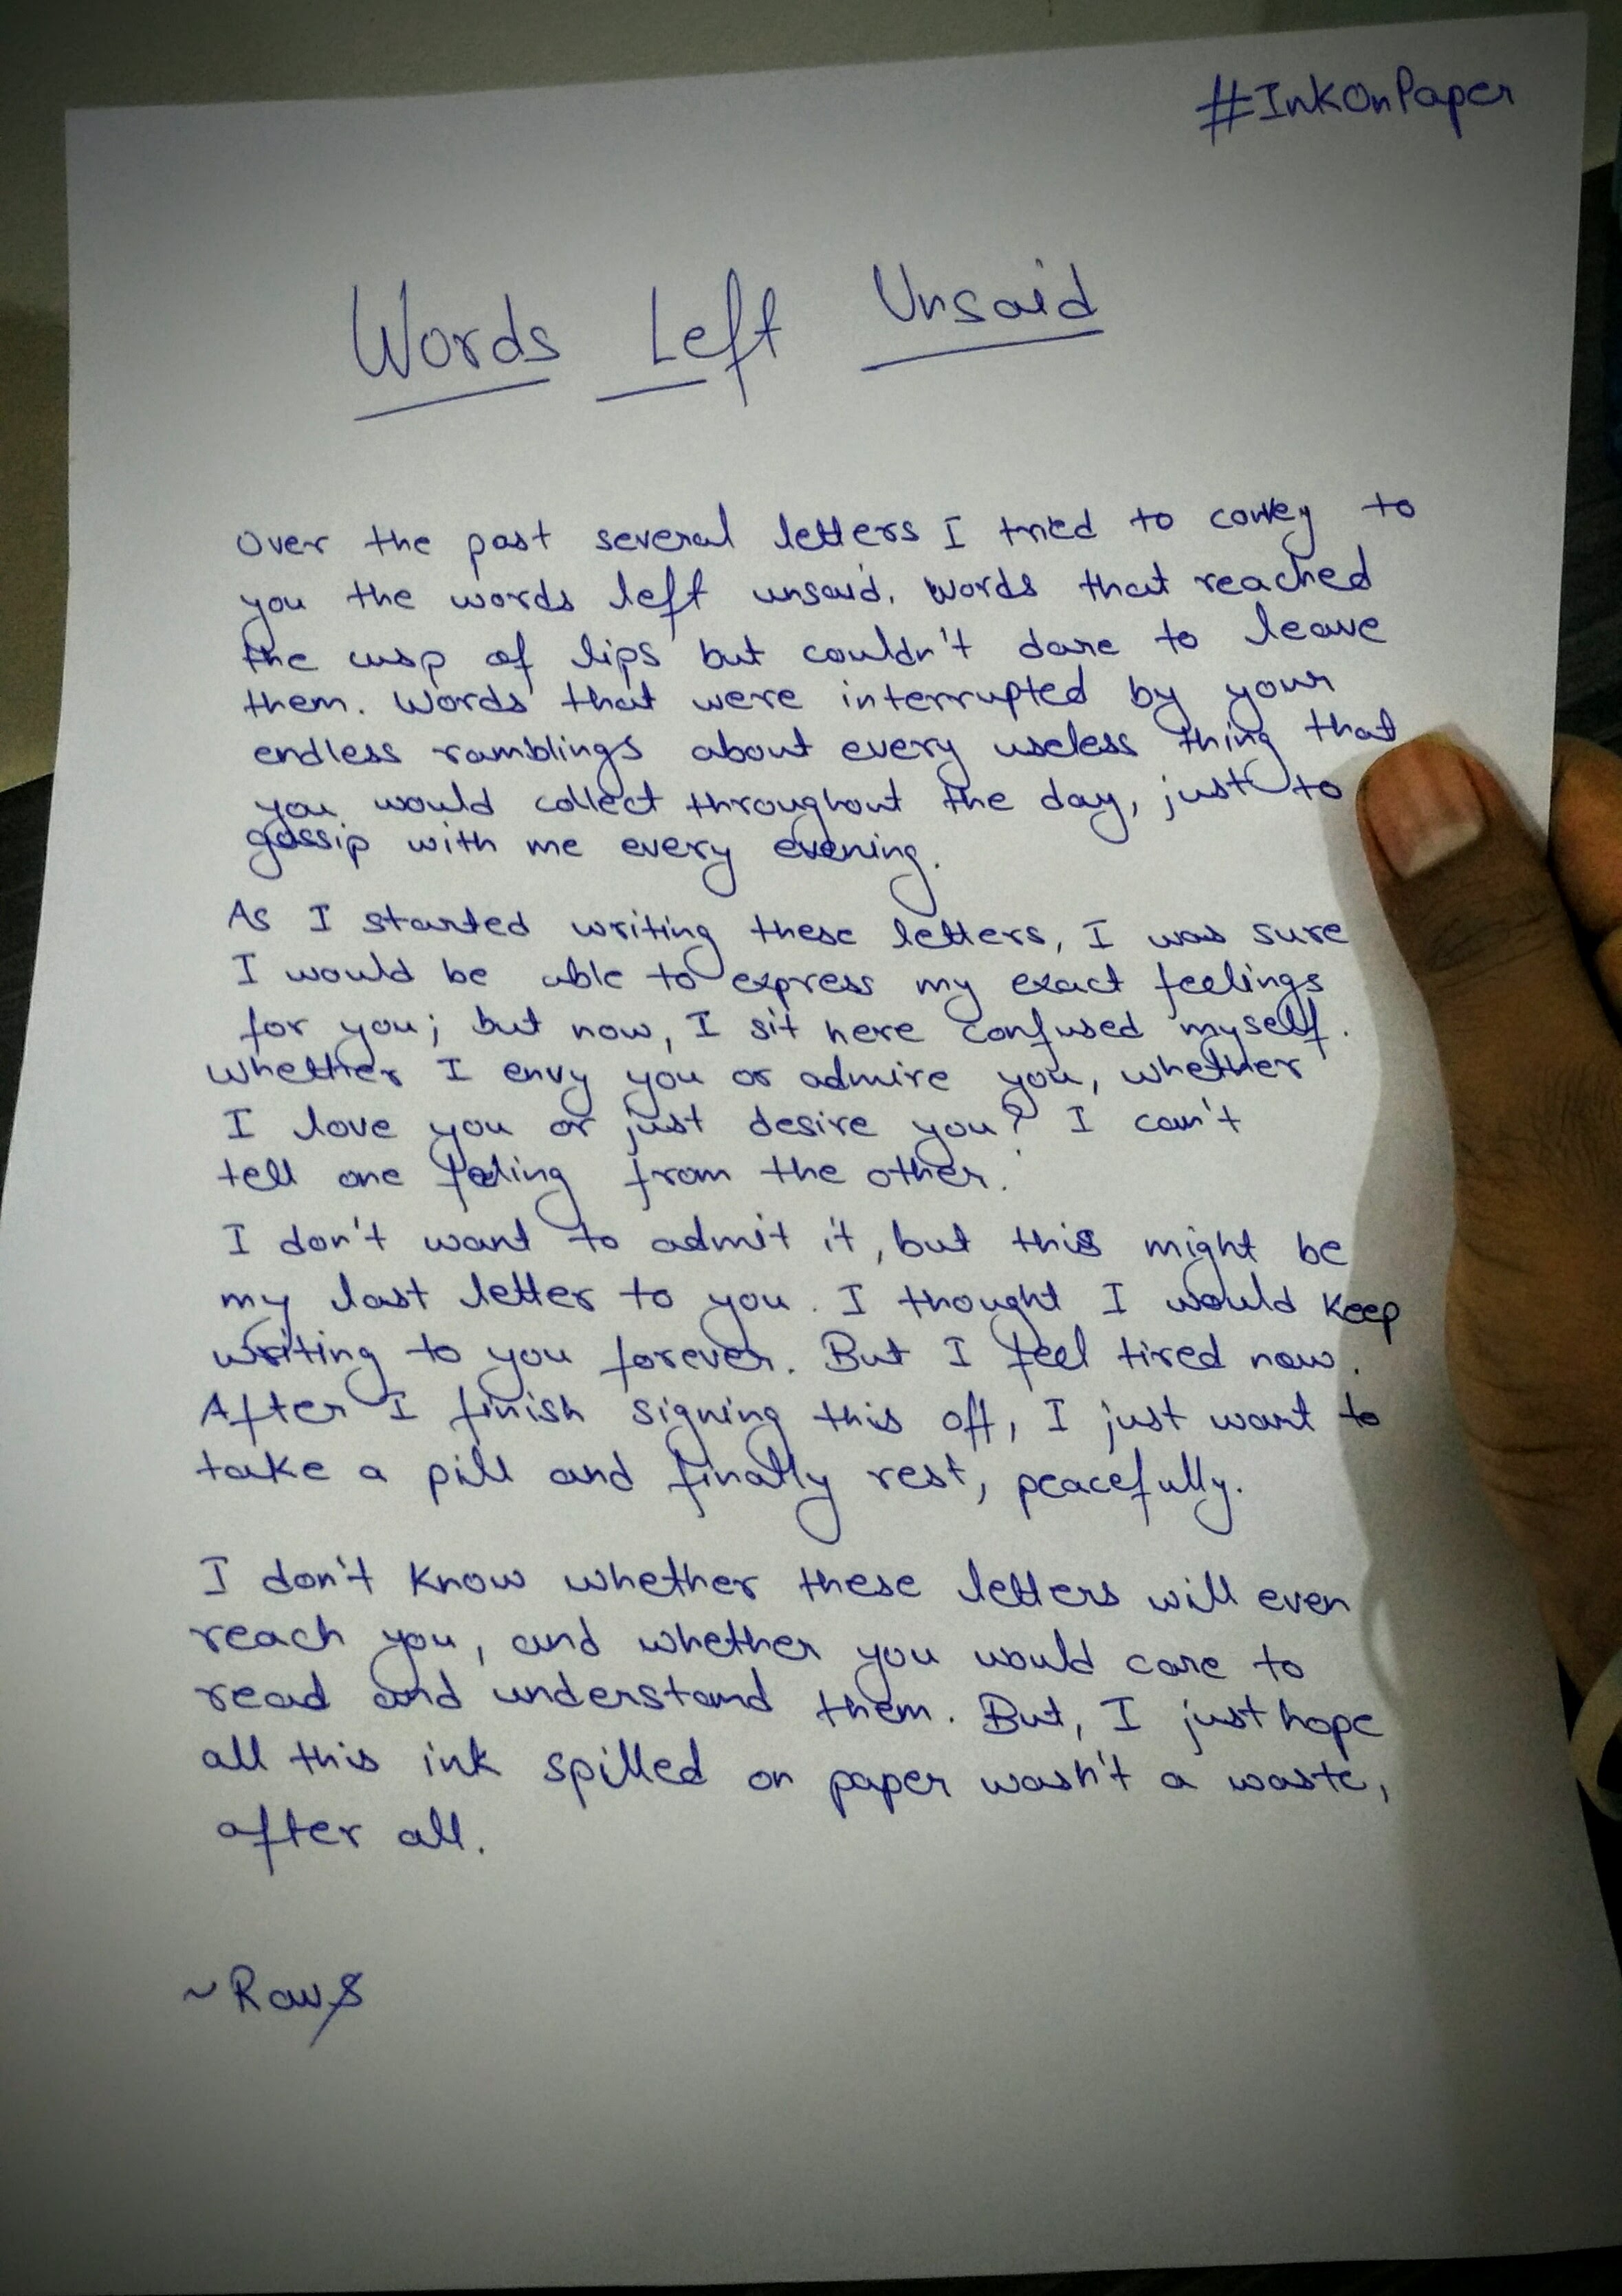 #InkOnPaper
Words Left Unsaid
Over the past several letters I tried to convey to
you the words left unsaid. Words that reached
the cusp of lips but couldn't dare to leave
them. Words that were interrupted by your
endless ramblings about every useless thing that
you would collect throughout the day, just to
gossip with me every evening.
As I started writing these letters, I was sure
I would be able to express my exact feelings
for you; but now, I sit here confused myself.
Whether I envy you or admire you, whether
I love you or just desire you? I can't
tell one feeling from the other.
I don't want to admit it, but this might be
my last letter to you. I thought I would keep
writing to you forever. But I feel tired now.
After I finish signing this off, I just want to
take a pill and finally rest, peacefully.
I don't know whether these letters will even
reach you, and whether you would care to
read and understand them. But, I just hope
all this ink spilled on paper wasn't a waste,
after all.